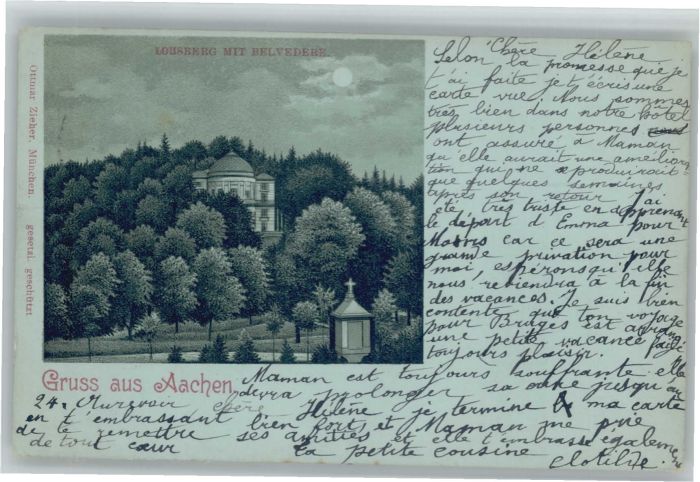 LOUSBERG MIT BELVEDERE.
Ottmar Zieher, München. gesetzl. geschützt
Gruss aus Aachen.
Chère Hélène
Selon la promesse que je
t'ai faite je t'écris une
carte vue. Nous sommes
très bien dans notre hôtel
plusieurs personnes
ont assuré à Maman
qu'elle aurait une améliora-
tion qui ne se produirait
que quelques semaines
après son retour. J'ai
été très triste en apprenant
le départ d'Emma pour
car ce sera une
grande privation pour
moi, espérons qu'elle
nous reviendra à la fin
des vacances. Je suis bien
contente que ton voyage
pour Bruges est
une petite vacance fait
toujours plaisir.
Maman est toujours souffrante elle
devra prolonger sa cure jusqu'au
24. Aurevoir chère Hélène je termine ma carte
en t'embrassant bien fort et Maman me prie
de te remettre ses amitiés et elle t'embrasse également
de tout cœur
ta petite cousine
Clotilde.